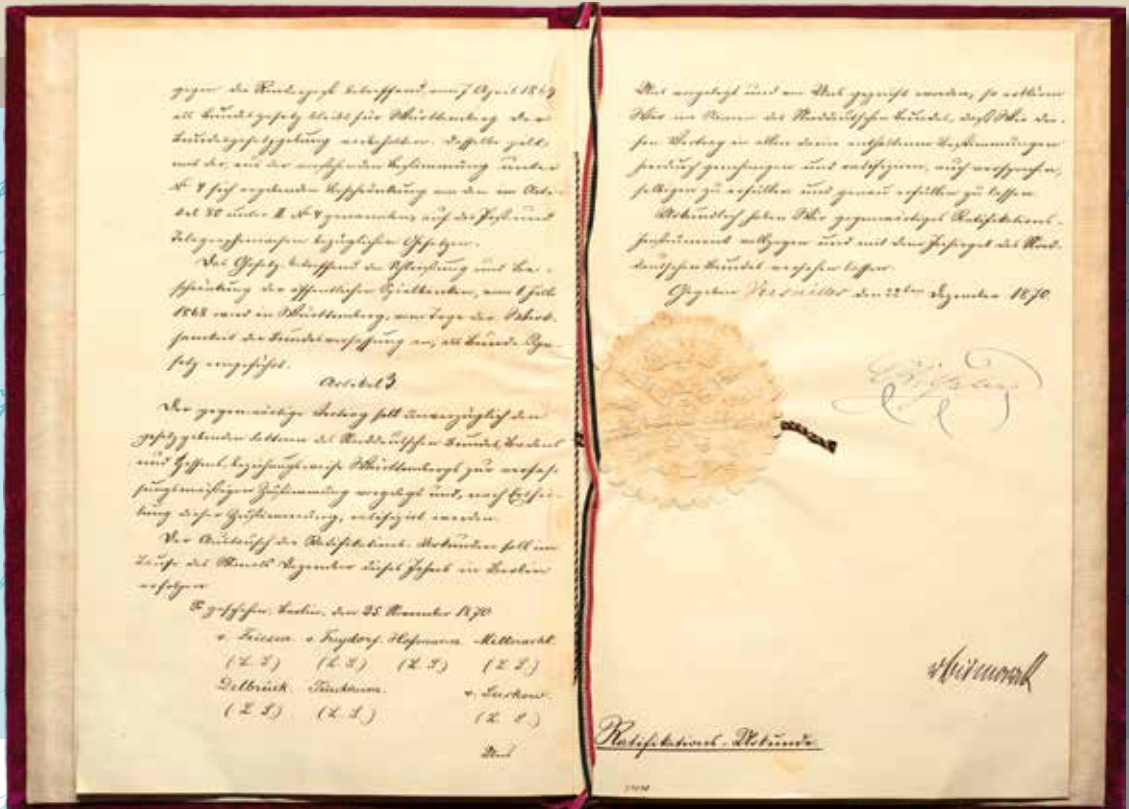 gegen die Rinderpest betreffend, vom 7 April 1869
als Bundesgesetz bleibt für Württemberg der
Bundesgesetzgebung vorbehalten. Dasselbe gilt,
mit der, aus der vorstehenden Bestimmung unter
№ 4 sich ergebenden Beschränkung von den im Arti-
kel 80 unter II № 4 genannten, auf das Post- und
Telegraphenwesen bezüglichen Gesetzen.
Das Gesetz, betreffend die Schließung und Be-
schränkung der öffentlichen Spielbanken, vom 1 Juli
1868 wird in Württemberg, vom Tage der Wirk-
samkeit der Bundesverfassung an, als Bundesge-
setz eingeführt.
Artikel 3
Der gegenwärtige Vertrag soll unverzüglich den
gesetzgebenden Faktoren des Norddeutschen Bundes, Badens
und Hessens, beziehungsweise Württembergs zur verfas-
sungsmäßigen Zustimmung vorgelegt und, nach Erthei-
lung dieser Zustimmung, ratifizirt werden.
Der Austausch der Ratifikations-Urkunden soll im
Laufe des Monats Dezember dieses Jahres in Berlin
erfolgen
So geschehen, Berlin, den 25 November 1870
v. Friesen v. Freydorf. Hofmann Mittnacht.
(L. S.) (L. S.) (L. S.) (L. S.)
Delbrück. Türckheim. v. Suckow.
(L. S.) (L. S.) (L. S.)
Uns
Uns vorgelegt und von Uns geprüft worden, so erklären
Wir im Namen des Norddeutschen Bundes, daß Wir die-
sen Vertrag in allen darin enthaltenen Bestimmungen
hierdurch genehmigen und ratifiziren, auch versprechen,
selbigen zu erfüllen und genau erfüllen zu lassen
Urkundlich haben Wir gegenwärtiges Ratifikations-
Instrument vollzogen und mit dem Insiegel des Nord-
deutschen Bundes versehen lassen.
Gegeben Versailles den 22ten Dezember 1870.
Wilhelm
v Bismarck
Ratifikations-Urkunde.